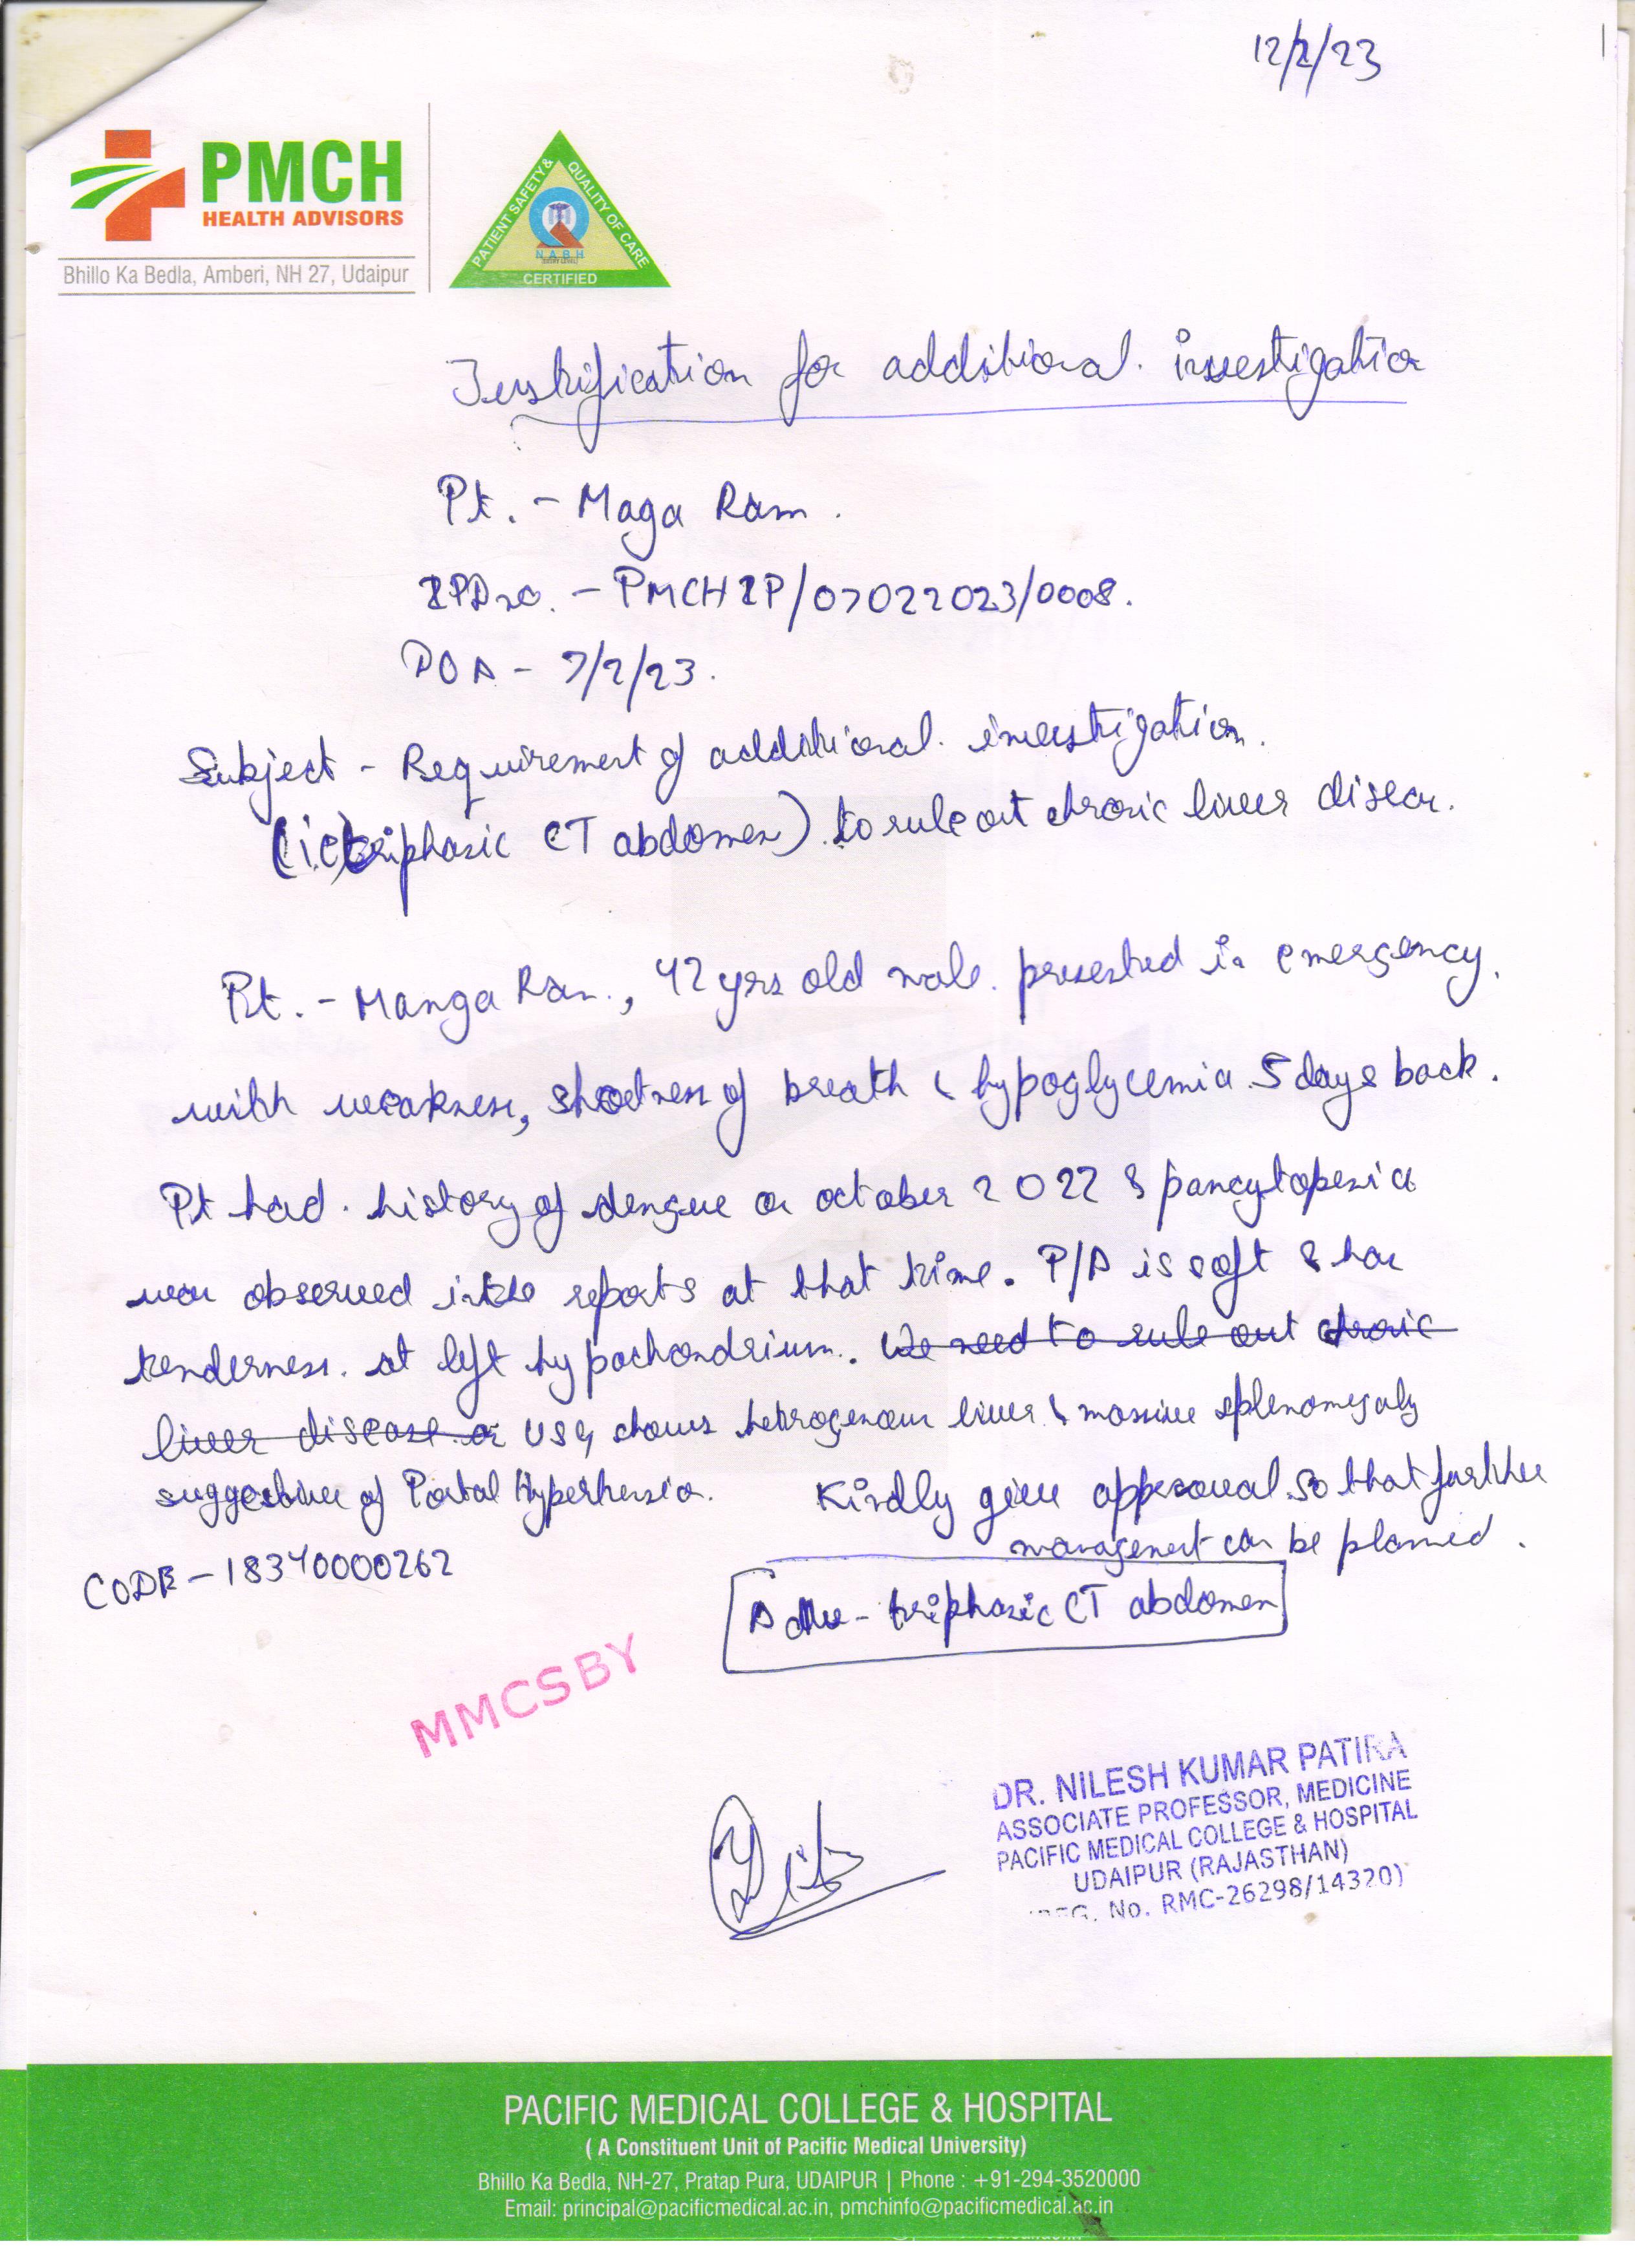 12/2/23
PMCH
HEALTH ADVISORS
Bhillo Ka Bedla, Amberi, NH 27, Udaipur
PATIENT SAFETY & QUALITY OF CARE
NABH
CERTIFIED
Justification for additional investigation
Pt. - Maga Ram.
IPD no. - PMCHIP/07022023/0008.
DOA - 7/2/23.
Subject - Requirement of additional investigation.
(i.e triphasic CT abdomen) to rule out chronic liver disease.
Pt. - Manga Ram, 42 yrs old male presented in emergency.
with weakness, shortness of breath & hypoglycemia 5 days back.
Pt had history of dengue on october 2022 & pancytopenia
was observed in the reports at that time. P/A is soft & has
tenderness at left hypochondrium. We need to rule out chronic
liver disease USG shows hetrogenous liver & massive splenomegaly
suggestive of Portal Hypertension. Kindly give approval so that further
management can be planned.
CODE - 18340000262
Adv - triphasic CT abdomen
MMCSBY
DR. NILESH KUMAR PATIRA
ASSOCIATE PROFESSOR, MEDICINE
PACIFIC MEDICAL COLLEGE & HOSPITAL
UDAIPUR (RAJASTHAN)
No. RMC-26298/14320)
PACIFIC MEDICAL COLLEGE & HOSPITAL
( A Constituent Unit of Pacific Medical University)
Bhillo Ka Bedla, NH-27, Pratap Pura, UDAIPUR | Phone : +91-294-3520000
Email: principal@pacificmedical.ac.in, pmchinfo@pacificmedical.ac.in